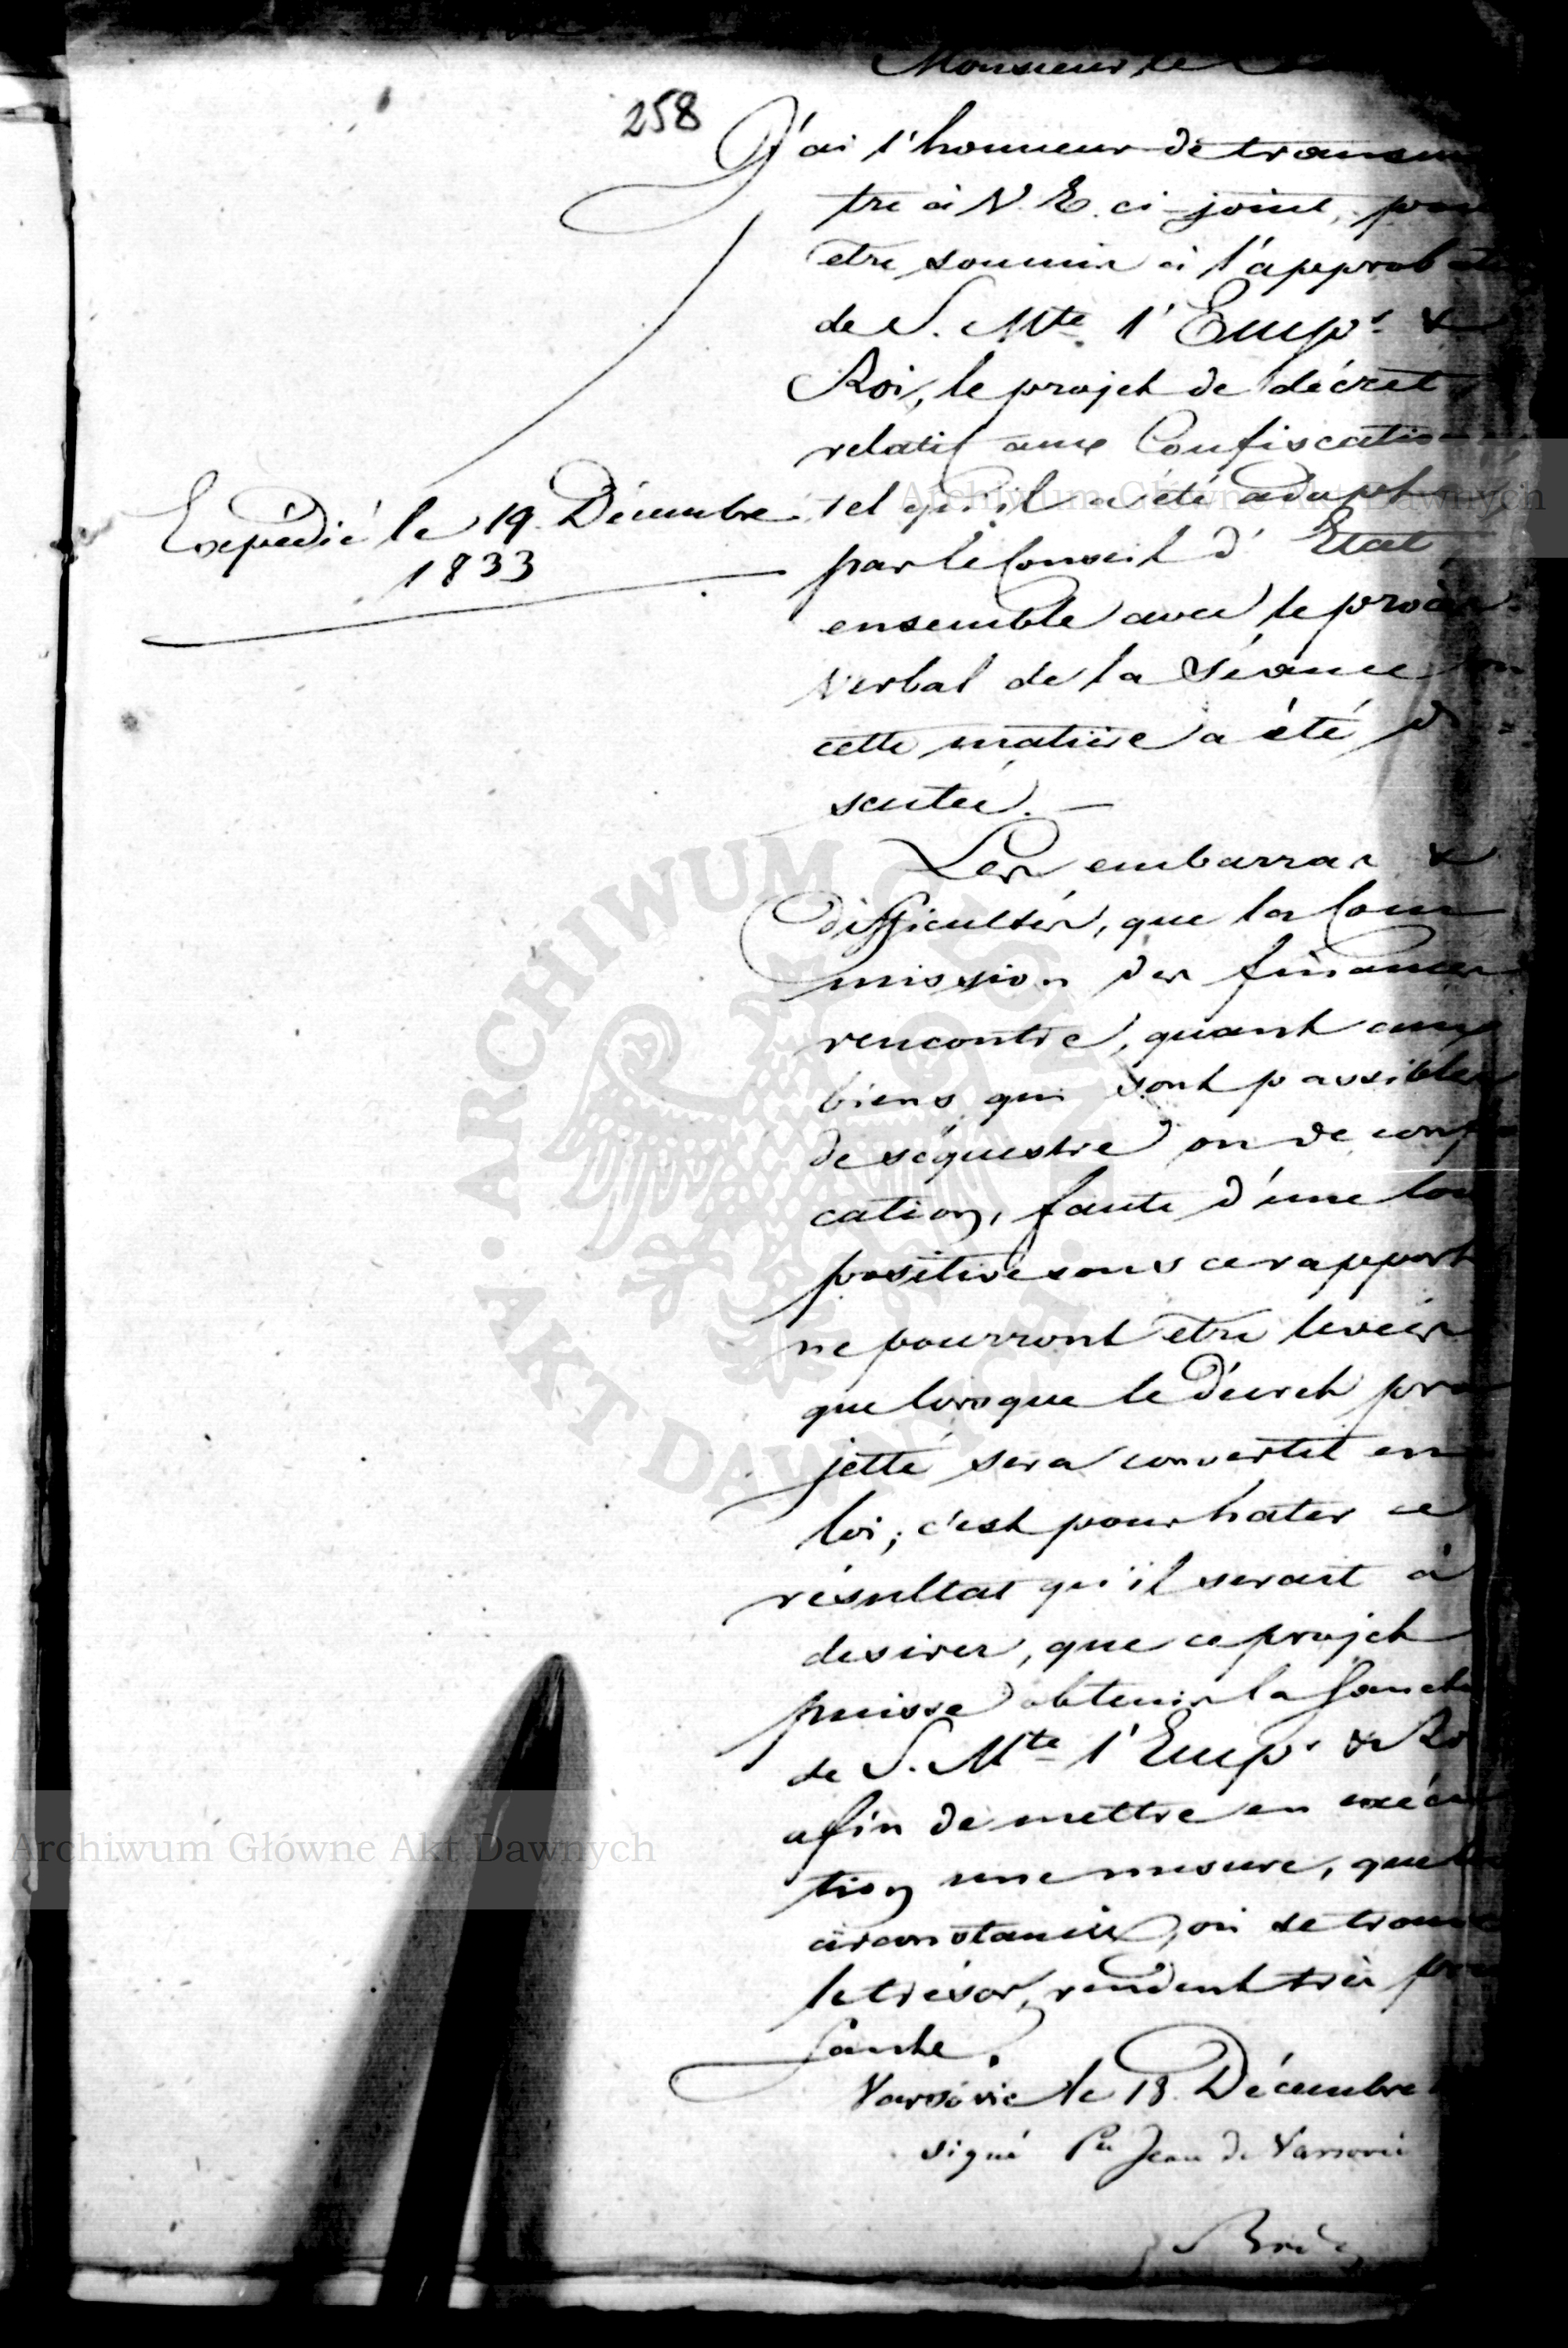 Monsieur le
258
J'ai l'honneur de transm
tre à V. E. ci-joint, pour
etre soumis à l'approbat
de S. Mté l'Empr &
Roi, le projet de décret
relatif aux Confiscations
tel qu'il a été adopté
par le Conseil d'Etat,
ensemble avec le procès
verbal de la Séance
cette matière a été d
scutée. —
Expédié le 19 Décembre
1833
Les embarras &
difficultés, que la Com
mission des finances
rencontre, quant aux
biens qui sont passibles
de séquestre ou de confis
cation, faute d'une loi
positive sous ce rapport
ne pourront etre levées
que lorsque le Décret pro
jetté sera convertit en
loi; c'est pour hater ce
résultat qu'il serait à
desirer, que ce projet
puisse obtenir la Sancti
de S. Mté l'Empr & Ro
afin de mettre en exécu
tion une mesure, que les
circonstances, où se trouve
le trésor, rendent très pres
sante.
Varsovie le 18 Décembre
signé Pce Jean de Varsovie
Archiwum Główne Akt Dawnych
Archiwum Główne Akt Dawnych
ARCHIWUM GŁÓWNE
AKT DAWNYCH